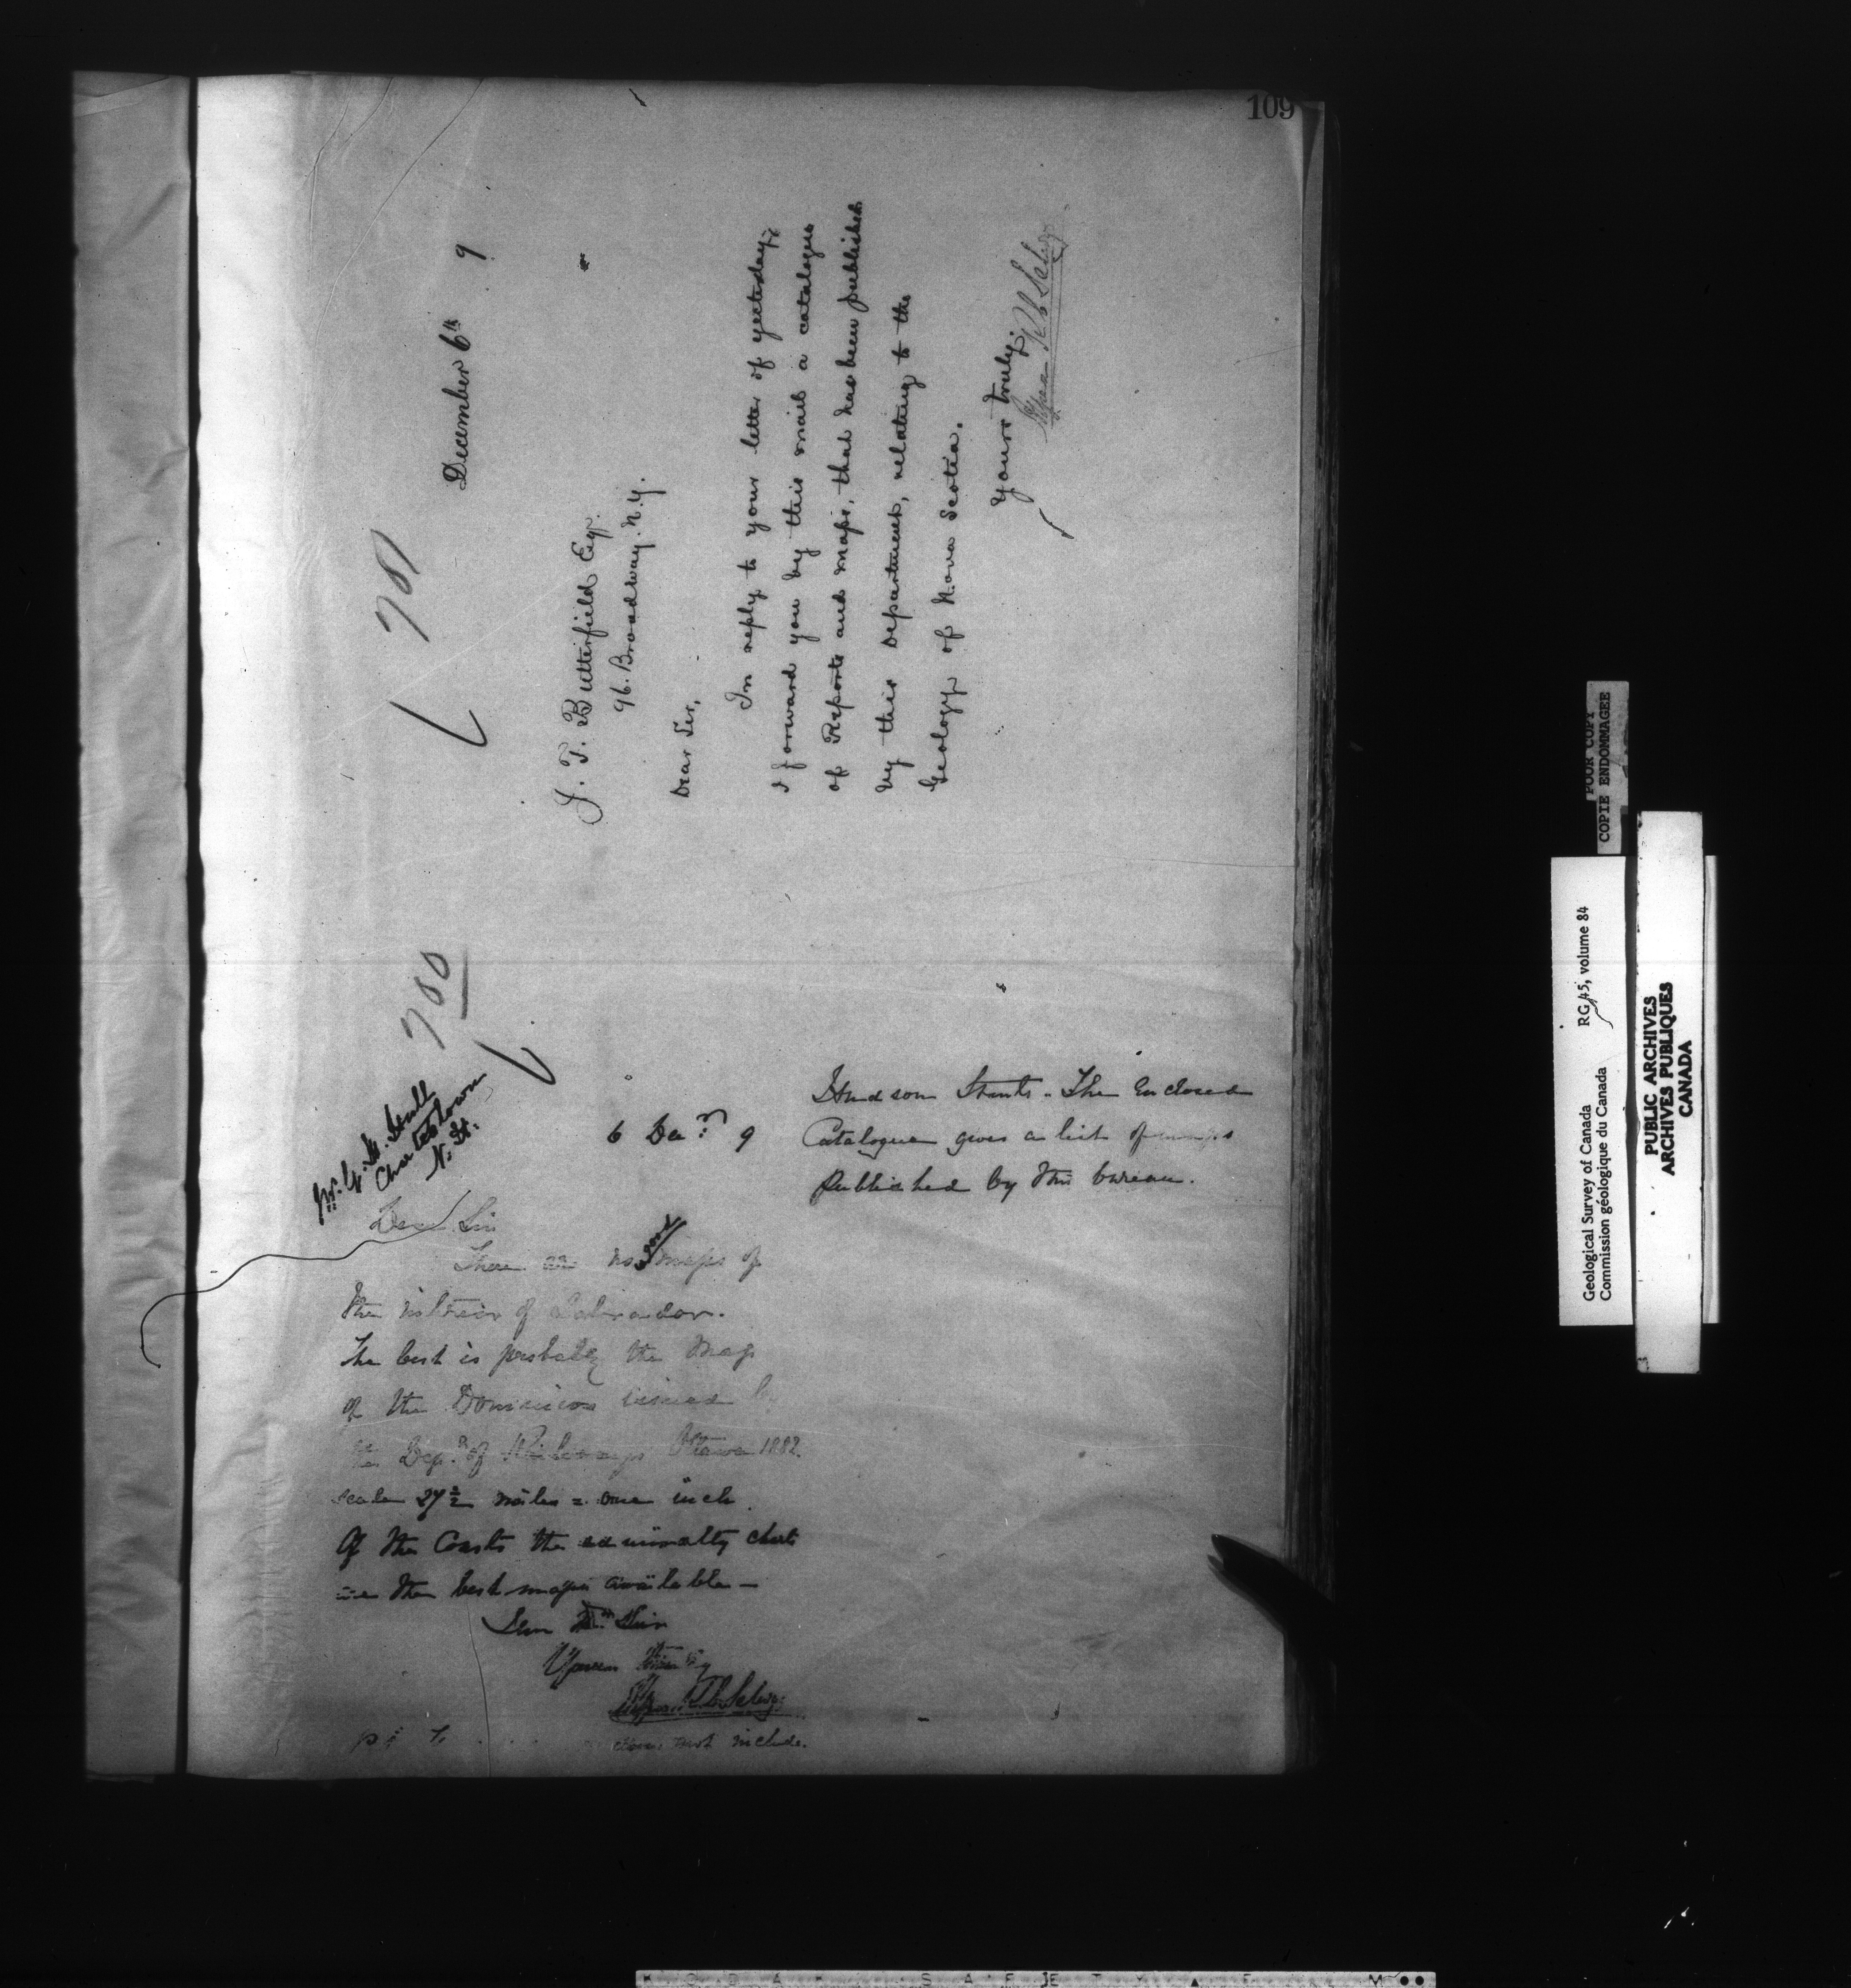 109
781
December 6th 9
J. T. Butterfield Esqr.
96. Broadway. N.Y.
Dear Sir,
In reply to your letter of yesterday
I forward you by this mail a catalogue
of Reports and Maps, that has been published
by this Department, relating to the
Geology of Nova Scotia.
Yours truly.
780
Hull
Charlestown
N. H.
6 Decr. 9
Dear Sir
There are no good maps of
the interior of Labrador.
The best is probably the Map
of the Dominion issued by
the Dept. of Railways Ottawa 1882.
scale 27 1/2 miles = one inch.
Of the Coasts the admiralty charts
are the best maps available —
Dear Sir
Yours truly
does not include.
Hudson Straits. The Enclosed
Catalogue gives a list of maps
Published by this bureau.
POOR COPY
COPIE ENDOMMAGEE
Geological Survey of Canada RG 45, volume 84
Commission géologique du Canada
PUBLIC ARCHIVES
ARCHIVES PUBLIQUES
CANADA
KODAK SAFETY